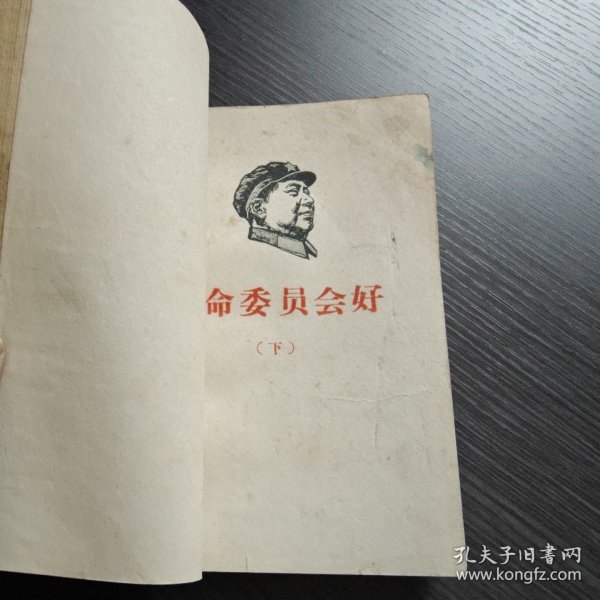 命委员会好
（下）
孔夫子旧書网
www.kongfz.com